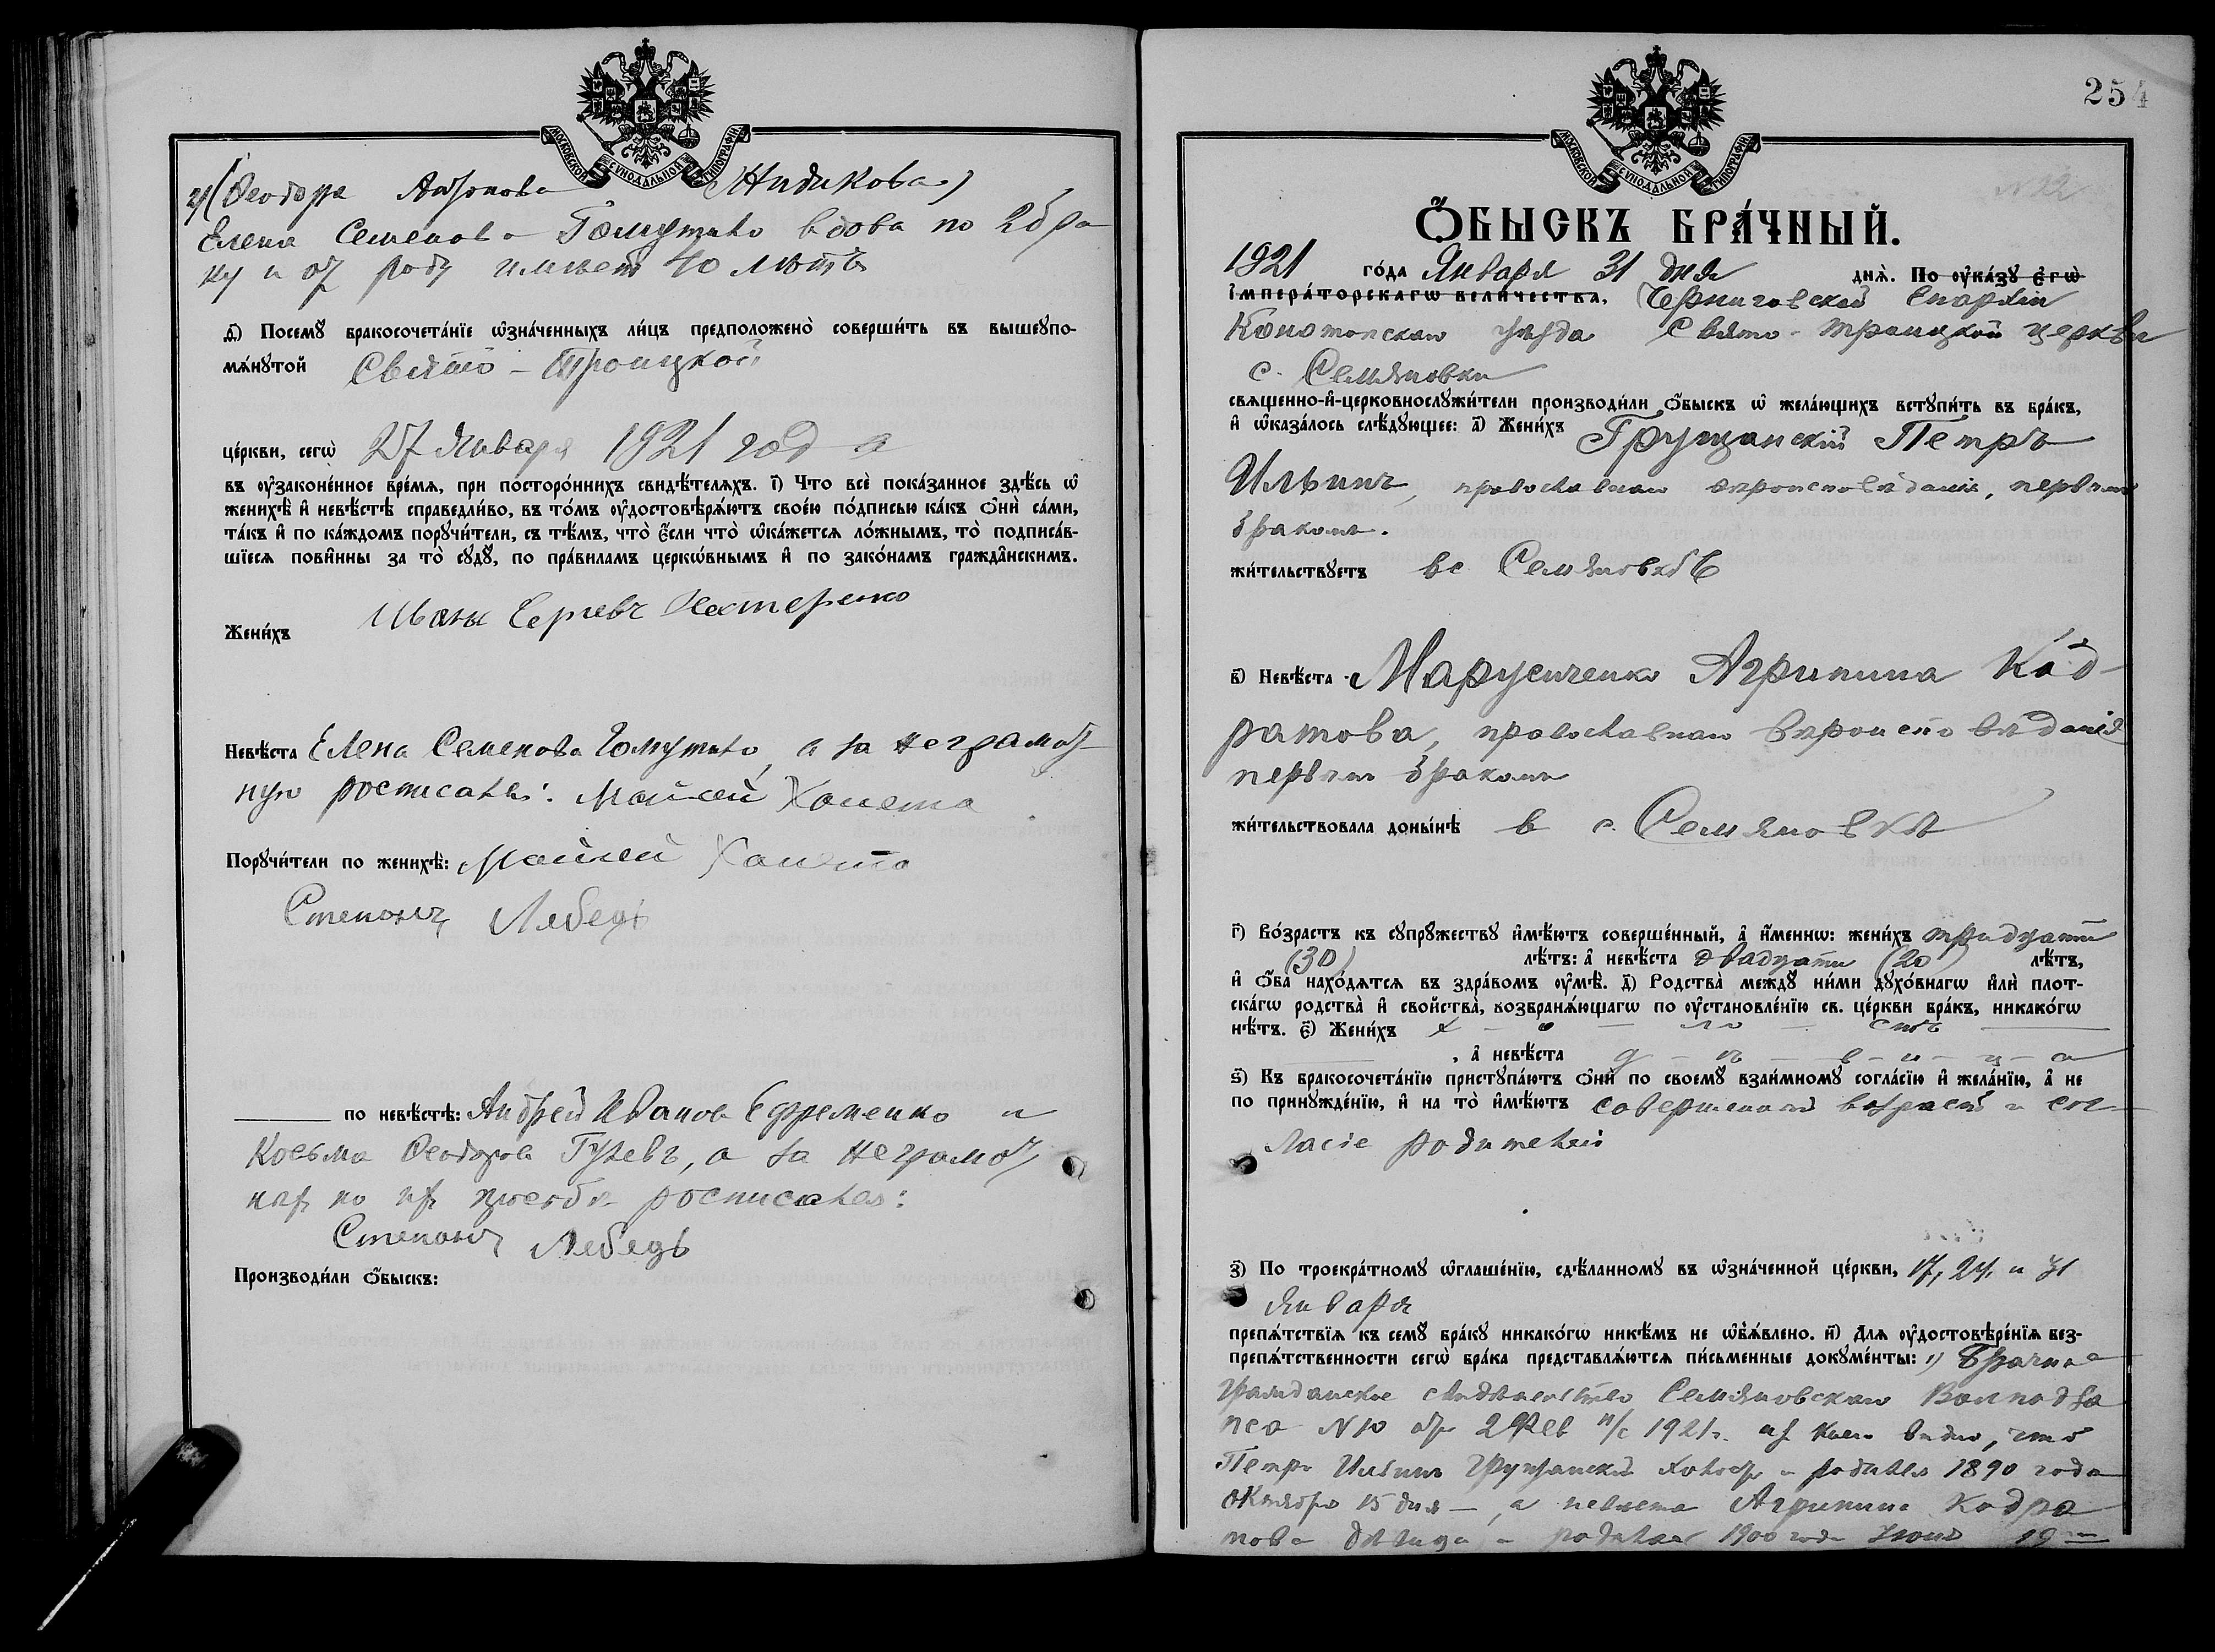 МОСКОВСКОЙ СѴНОДАЛЬНОЙ ТИПОГРАФІИ
Антонова
Елена Семенова вдова по 2 бра
ку и отъ роду имѣетъ 40 лѣтъ
д҃) Посемꙋ бракосочета́нїе ѡ҆зна́ченныхъ ли́цъ предположено̀ соверши́ть въ вышеꙋпо-
мѧ́нꙋтой Свято-Троицкой
це́ркви, сегѡ̀ 27 Января 1921 года
въ ᲂу҆законе́нное вре́мѧ, при посторо́ннихъ свидѣ́телѧхъ. і҃) Что всѐ пока́занное здѣ́сь ѡ҆
женихѣ̀ и҆ невѣ́стѣ справедли́во, въ то́мъ ᲂу҆достовѣрѧ́ютъ свое́ю по́дписью ка́къ ѻ҆нѝ са́ми,
та́къ и҆ по ка́ждомъ порꙋчи́тели, съ тѣ́мъ, что̀ є҆́сли что̀ ѡ҆ка́жетсѧ ло́жнымъ, то̀ подписа́в-
шїесѧ пови́нны за то̀ сꙋдꙋ̀, по пра́виламъ церкѡ́внымъ и҆ по зако́намъ гражда̑нскимъ.
Жени́хъ Иванъ Нестеренко
Невѣ́ста Елена Семенова а за неграмот-
ную росписался: Моисей Ханета
Порꙋчи́тели по женихѣ̀: Моисей Ханета
Степанъ Лебедь
по невѣ́стѣ: Андрей Иванов Ефременко и
Косьма Ѳеодоров Гузевъ, а за неграмот
ныхъ по ихъ просьбѣ росписался:
Степанъ Лебедь
Производи́ли ѻ҆́быскъ:
254
МОСКОВСКОЙ СѴНОДАЛЬНОЙ ТИПОГРАФІИ
№ 22
Ѻ҆́БЫСКЪ БРА́ЧНЫЙ.
1921 го́да Января 31 дня днѧ̀. По ᲂу҆ка́зꙋ є҆гѡ̀
і҆мпера́торскагѡ вели́чества, Черниговской Епархіи
Конотопскаго уѣзда Свято-Троицкой церкви
с. Семяновки
свѧще́нно-и҆-церковнослꙋжи́тели производи́ли ѻ҆́быскъ ѡ҆ жела́ющихъ встꙋпи́ть въ бра́къ,
и҆ ѡ҆каза́лось слѣ́дꙋющее: а҃) Жени́хъ Грущанскій Петръ
Ильинъ, православнаго вѣроисповѣданія, первымъ
бракомъ.
жи́тельствꙋетъ в с Семяновкѣ
в҃) Невѣ́ста Марусиченко Агрипина Код-
ратова, православнаго вѣроисповѣданія
первымъ бракомъ
жи́тельствовала доны́нѣ в с. Семяновкѣ
г҃) Во́зрастъ къ сꙋпрꙋ́жествꙋ и҆мѣ́ютъ соверше́нный, а҆ и҆́меннѡ: жени́хъ тридцати
(30) лѣ́тъ: а҆ невѣ́ста двадцати (20) лѣ́тъ,
и҆ ѻ҆́ба нахо́дѧтсѧ въ здра́вомъ ᲂу҆мѣ̀. д҃) Родства̀ междꙋ̀ ни́ми дꙋхо́внагѡ и҆лѝ пло́т-
скагѡ родства̀ и҆ свойства̀, возбранѧ́ющагѡ по ᲂу҆становле́нїю св. це́ркви бра́къ, никако́гѡ
нѣ́тъ. є҃) Жени́хъ х – о – ло – стъ
, а҆ невѣ́ста д – ѣ – в – и – ц – а
ѕ҃) Къ бракосочета́нїю пристꙋпа́ютъ ѻ҆нѝ по своемꙋ̀ взаи́мномꙋ согла́сїю и҆ жела́нїю, а҆ не
по принꙋжде́нїю, и҆ на то̀ и҆мѣ́ютъ совершенный возрастъ и сог-
ласіе родителей
з҃) По троекра́тномꙋ ѡ҆глаше́нїю, сдѣ́ланномꙋ въ ѡ҆зна́ченной це́ркви, 17, 24 и 31
Января
препѧ́тствїѧ къ семꙋ̀ бра́кꙋ никако́гѡ никѣ́мъ не ѡ҆б̾ѧ́влено. и҃) Длѧ ᲂу҆достовѣре́нїѧ без-
препѧ́тственности сегѡ̀ бра́ка представлѧ́ютсѧ пи́сьменные докꙋме́нты: 1) Брачное
гражданское свидѣтельство Семяновскаго Волподза
гса № 10 отъ 2 Фев н/с 1921 г. изъ коего видно, что
Петръ Ильинъ Грущанскій холостъ и родился 1890 года
Октября 15 дня —, а невѣста Агрипина Кодра
това дѣвица и родилась 1900 года Іюня 19